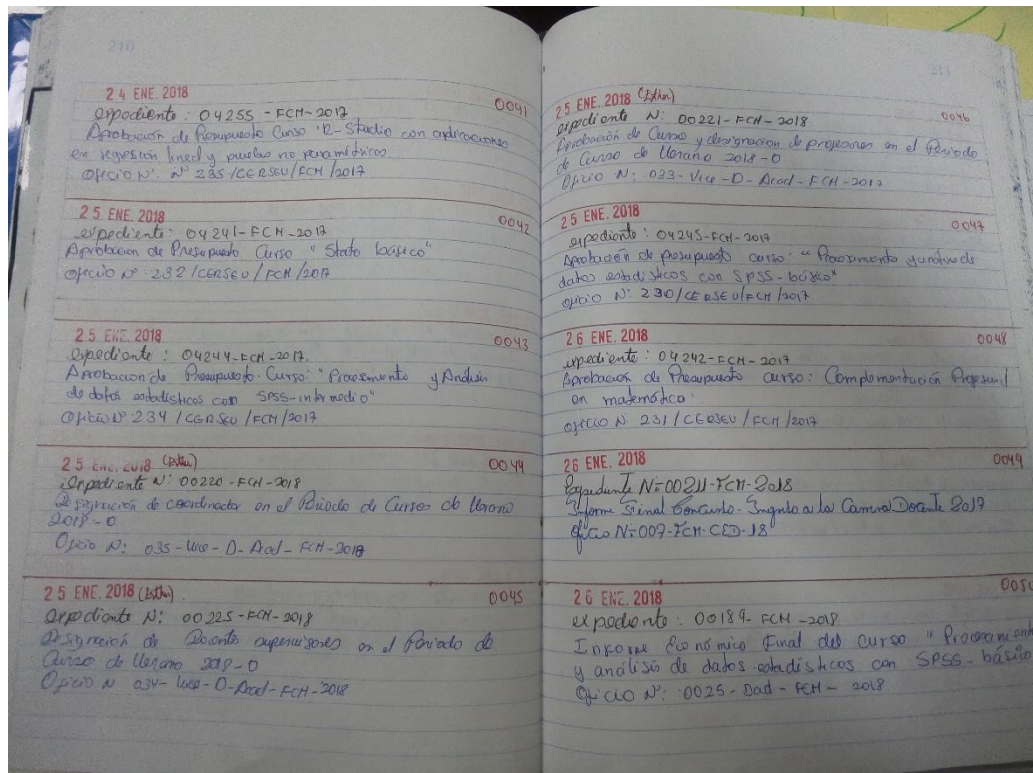 210
24 ENE. 2018
0041
expediente : 04255 - FCM - 2017
Aprobación de Presupuesto Curso "R-Studio con aplicaciones
en regresión lineal y pruebas no paramétricas
Oficio N° 235/CERSEU/FCM/2017
25 ENE. 2018
0042
expediente : 04241-FCM-2017
Aprobacion de Presupuesto Curso "Stata básico"
oficio N° : 232/CERSEU/FCM/2017
25 ENE. 2018
0043
expediente : 04244-FCM-2017.
Aprobacion de Presupuesto. Curso: "Procesmiento y Análisis
de datos estadísticos con SPSS-intermedio"
Oficio N° 234 /CERSEU/FCM/2017
25 ENE. 2018 (Esther)
0044
expediente N: 00220 -FCM-2018
Designación de coordinador en el Periodo de Cursos de Verano
2018-0
Oficio N: 035-Vice-D-Acad-FCM-2018
25 ENE. 2018 (Esther).
0045
expediente N: 00225-FCM-2018
Designación de Docentes supervisores en el Periodo de
Curso de Verano 2018-0
Oficio N 034-Vice-D-Acad-FCM-2018
211
25 ENE. 2018 (Esther)
0046
expediente N: 00221-FCM-2018
Aprobación de Curso y designacion de profesores en el Periodo
de Curso de Verano 2018-0
Oficio N: 033-Vice-D-Acad-FCM-2017
25 ENE. 2018
0047
expediente : 04245-FCM-2017
Aprobación de presupuesto curso: "
datos estadísticos con SPSS-básico"
oficio N°: 230/CERSEU/FCM/2017
26 ENE. 2018
0048
expediente : 04242-FCM-2017
Aprobación de Presupuesto curso: Complementación Profesional
en matemática.
oficio N° 231/CERSEU/FCM/2017
26 ENE. 2018
0049
Expediente N=00211-FCM-2018
Informe Final Concurso. Ingreso a la Carrera Docente 2017
Oficio N=007-FCM-CED-18
26 ENE. 2018
expediente : 00189-FCM-2018
Informe Económico Final del curso "
y análisis de datos estadísticos con SPSS-básico
Oficio N°: 0025-Dad-FCM-2018